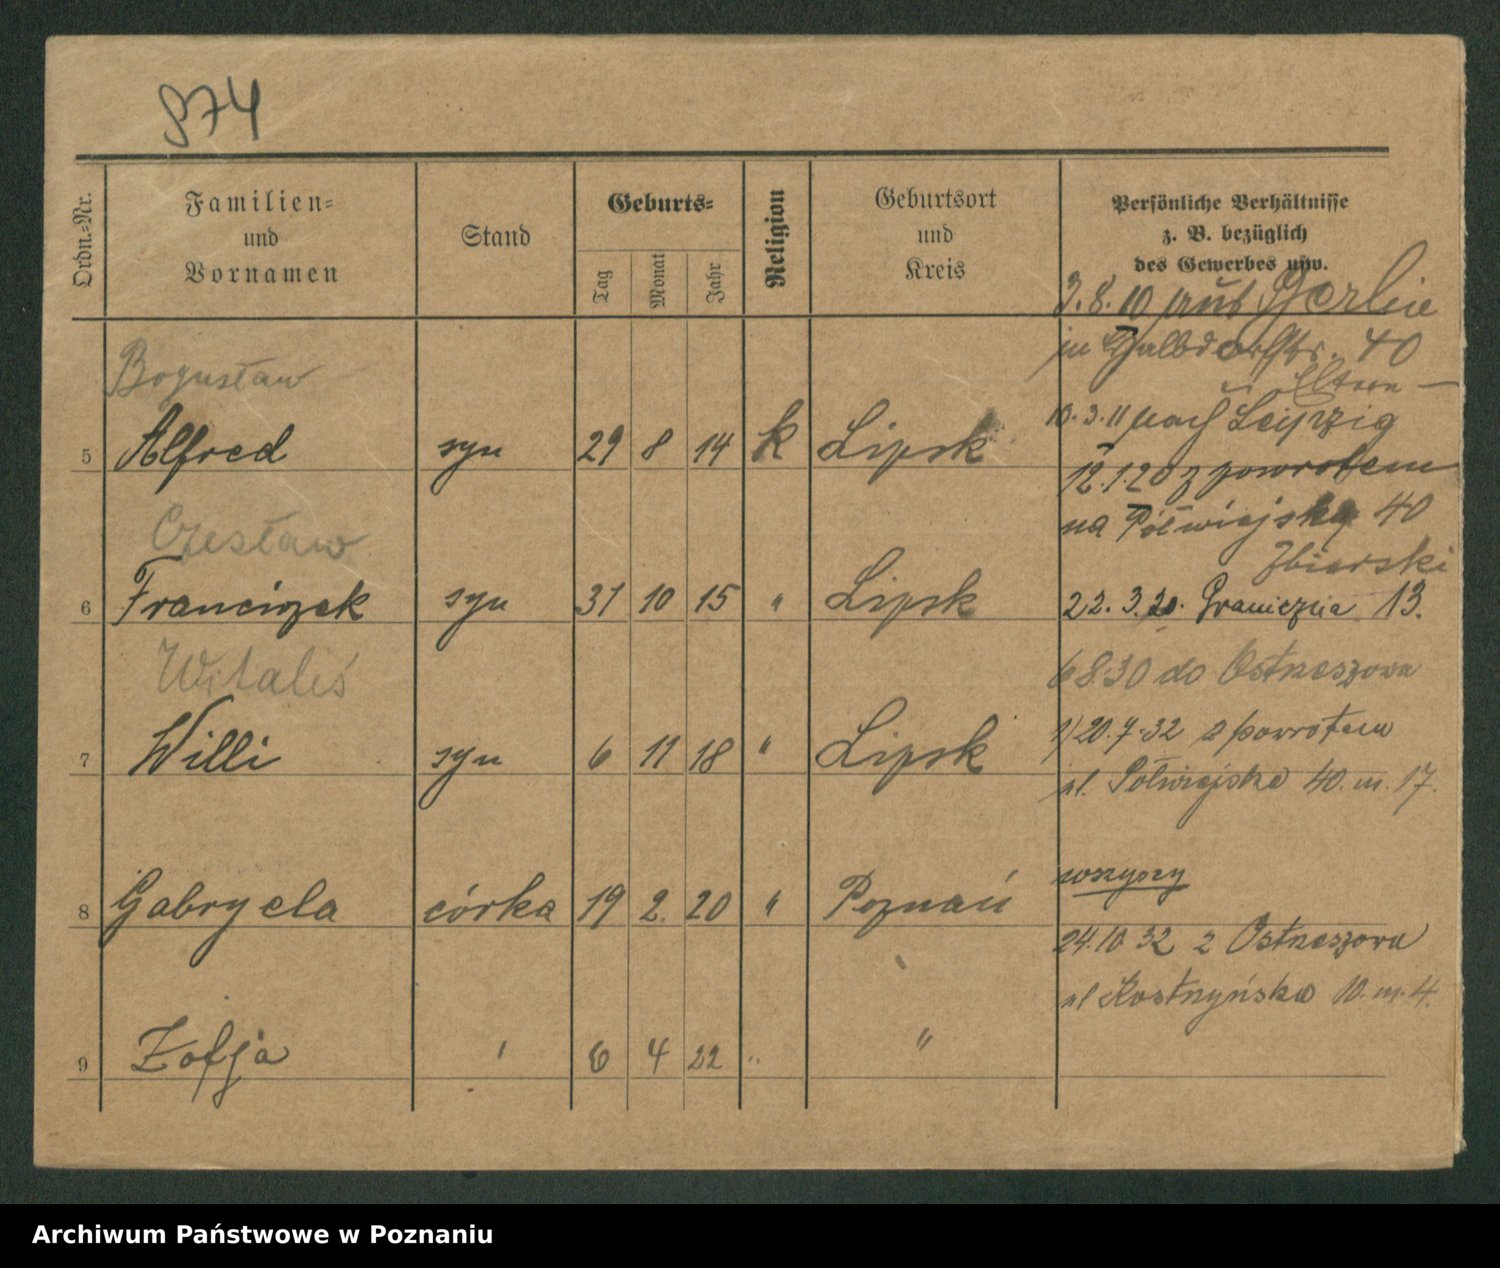 874
Ordn.-Nr.
Familien-
und
Vornamen
Stand
Geburts-
Tag
Monat
Jahr
Religion
Geburtsort
und
Kreis
Persönliche Verhältnisse
z. B. bezüglich
des Gewerbes usw.
3.8.10 aus Berlin
in Halbdorfstr. 40
Eltern
10.3.11 nach Leipzig
12.1.20 z powrotem
na Półwiejską 40
Zbierski
22.3.20. Graniczna 13.
6830 do Ostrzeszowa
20.7.32 z powrotem
ul. Półwiejska 40. m. 17.
wszyscy
24.10 32 z Ostrzeszowa
ul Kostrzyńska 10. m. 4.
Bogusław
5 Alfred syn 29 8 14 k Lipsk
Czesław
6 Franciszek syn 31 10 15 " Lipsk
Witaliś
7 Willi syn 6 11 18 " Lipsk
8 Gabryela córka 19 2. 20 " Poznań
9 Zofja ' 6 4 22 " "
Archiwum Państwowe w Poznaniu